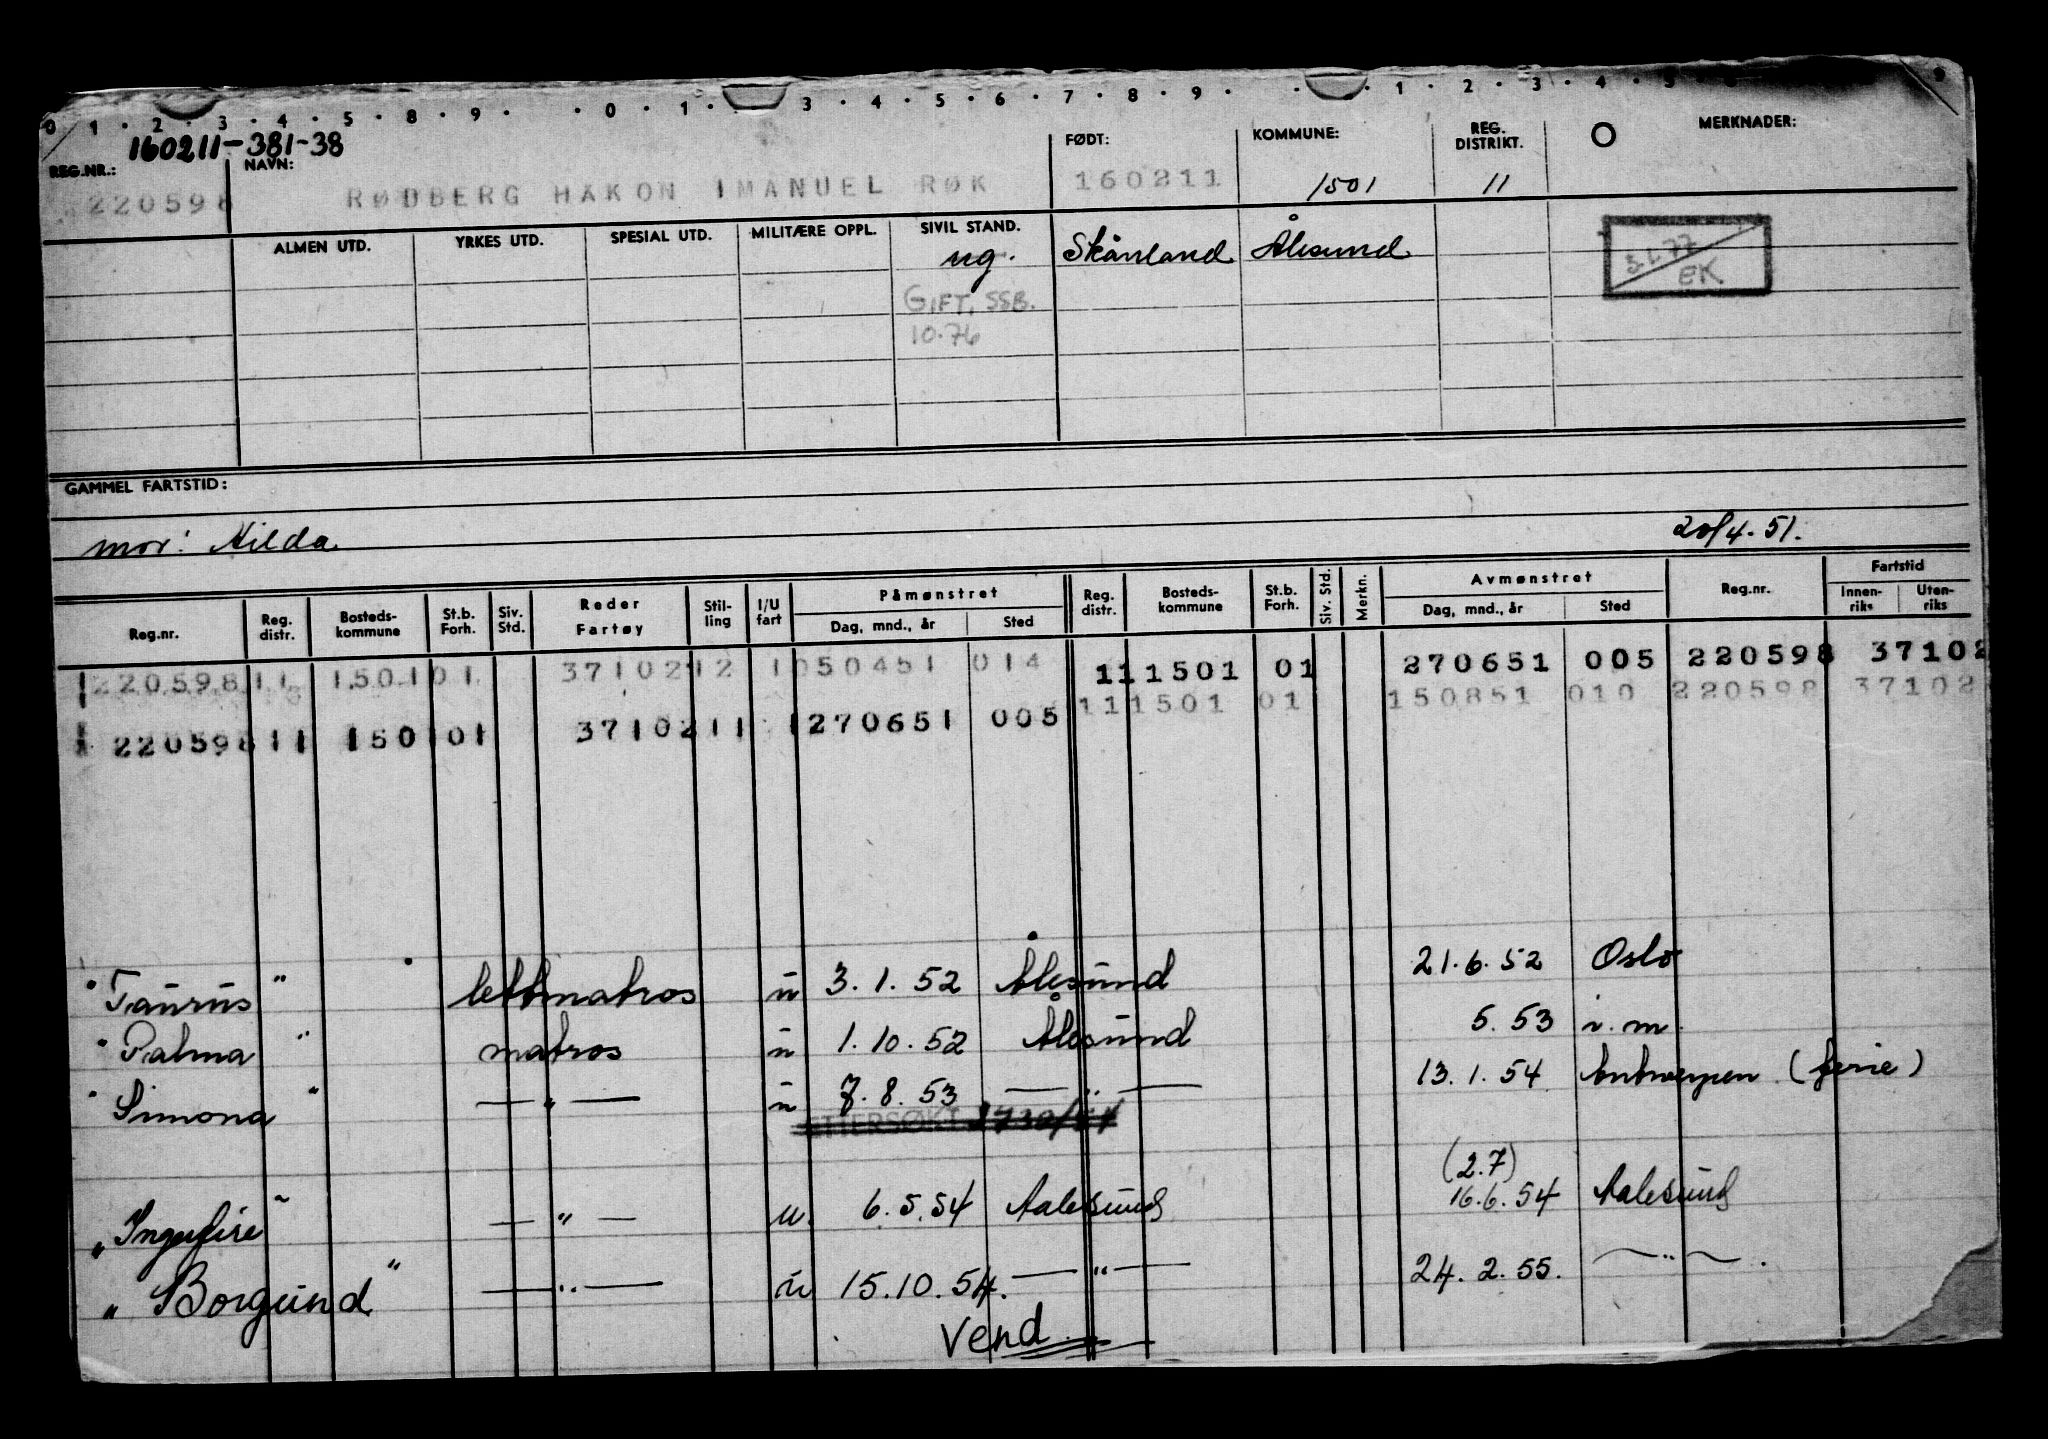 0 1 · 2 · 3 · 4 · 5 · 8 · 9 · · 0 · 1 · 3 · 4 · 5 · 6 · 7 · 8 · 9 · · 1 · 2 · 3 · 4 · 5 9
160211-381-38
REG.NR.: NAVN: FØDT: KOMMUNE: REG. DISTRIKT. MERKNADER:
220598 RØDBERG HAKON IMANUEL RØK 160211 1501 11
ALMEN UTD. YRKES UTD. SPESIAL UTD. MILITÆRE OPPL. SIVIL STAND.
ug. Skånland Ålesund
3.1.77 EK
GIFT. SSB.
10.76
GAMMEL FARTSTID:
mor: Hilda 20/4.51.
Reg.nr. Reg. distr. Bosteds-kommune St.b. Forh. Siv. Std. Reder Fartøy Stil-ling I/U fart Påmønstret Dag, mnd., år Sted Reg. distr. Bosteds-kommune St.b. Forh. Siv. Std. Merkn. Avmønstret Dag, mnd., år Sted Reg.nr. Fartstid Innen-riks Uten-riks
220598 11 1501 01 37102 12 1 050451 014 11 1501 01 270651 005 220598 37102
220598 11 1501 01 37102 11 1 270651 005 11 1501 01 150851 010 220598 37102
"Taurus" lettmatros u 3.1.52 Ålesund 21.6.52 Oslo
"Palma" matros u 1.10.52 Ålesund 5.53 i.m.
"Simona" — " — u 7.8.53 — " — 13.1.54 Antwerpen (ferie)
ETTERSØKT
(2.7)
"Ingefire" — " — u. 6.5.54 Aalesund 16.6.54 Aalesund
"Borgund" — " — u 15.10.54. — " — 24.2.55. — " — .
Vend